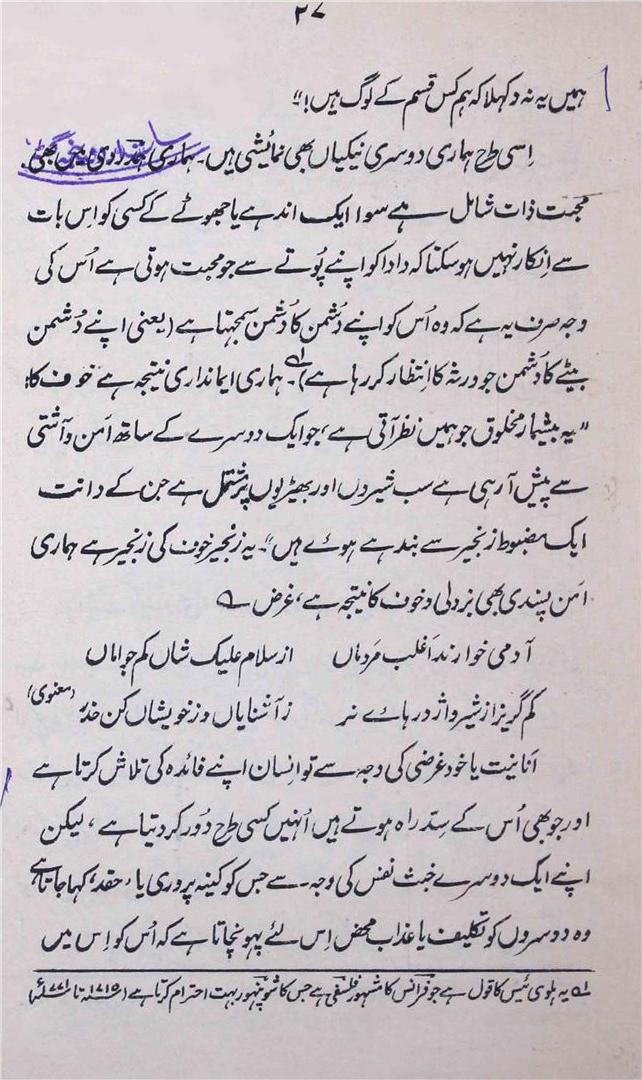 ۲۷
ہمیں یہ نہ دکھلا کہ ہم کس قسم کے لوگ ہیں!"
اِسی طرح ہماری دوسری نیکیاں بھی نمائشی ہیں۔ ہماری ہمدردی میں بھی
محبت ذات شامل ہے سوا ایک اندھے یا جھوٹے کے کسی کو اس بات
سے اِنکار نہیں ہو سکتا کہ دادا کو اپنے پُوتے سے جو محبت ہوتی ہے اُس کی
وجہ صرف یہ ہے کہ وہ اُس کو اپنے دُشمن کا دُشمن سمجھتا ہے (یعنی اپنے دُشمن
بیٹے کا دُشمن جو ورثہ کا اِنتظار کر رہا ہے)۔ ؎۱ ہماری ایمانداری نتیجہ ہے خوف کا:
"یہ بیشمار مخلوق جو ہمیں نظر آتی ہے، جو ایک دوسرے کے ساتھ امن و آشتی
سے پیش آ رہی ہے سب شیروں اور بھیڑیوں پر مشتمل ہے جن کے دانت
ایک مضبوط زنجیر سے بندھے ہوئے ہیں"۔ یہ زنجیر خوف کی زنجیر ہے ہماری
امن پسندی بھی بزدلی و خوف کا نتیجہ ہے، غرض ؎
آدمی خوارند اغلب مردماں از سلام علیک شاں کم جو اماں
کم گریز از شیر و اژدرہائے نر ز آشنایاں وز خویشاں کن حذر (معنوی)
انانیت یا خود غرضی کی وجہ سے تو اِنسان اپنے فائدہ کی تلاش کرتا ہے
اور جو بھی اُس کے سدِّ راہ ہوتے ہیں اُنہیں کسی طرح دُور کر دیتا ہے، لیکن
اپنے ایک دوسرے خبث نفس کی وجہ سے جس کو کینہ پروری یا 'حقد' کہا جاتا ہے
وہ دوسروں کو تکلیف یا عذاب محض اِس لئے پہونچاتا ہے کہ اُس کو اِس میں
؎۱ یہ ہلوی ٹیس کا قول ہے جو فرانس کا مشہور فلسفی ہے جس کا شوپنہور بہت احترام کرتا ہے (۱۷۱۵ء تا ۱۷۷۱ء)